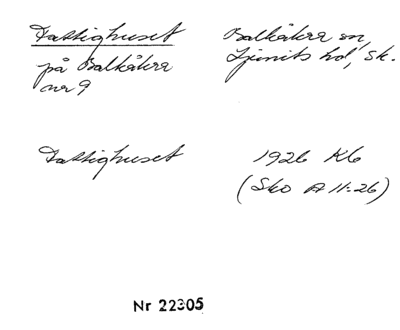 Fattighuset
på Balkåkra
nr 9
Balkåkra sn,
Ljunits hd, Sk.
Fattighuset
1926 K6
(Sko A 11:26)
Nr 22305